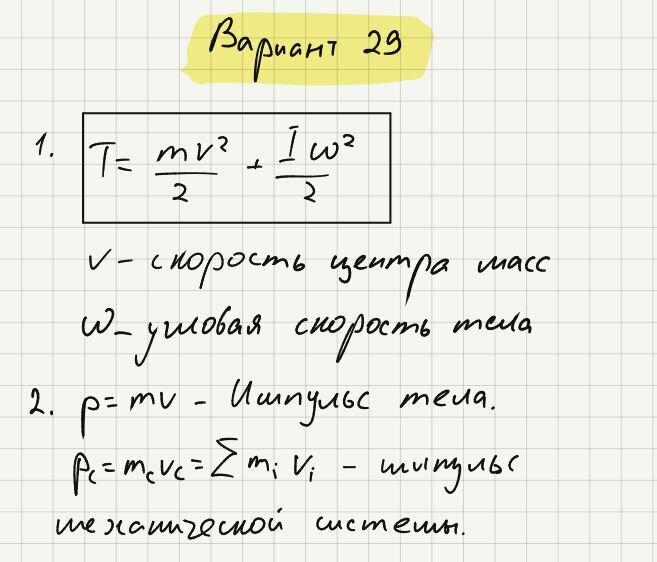 Вариант 29
1. T = mv²/2 + Iω²/2
v – скорость центра масс
ω – угловая скорость тела
2. p = mv – Импульс тела.
p_c = m_c v_c = Σ m_i v_i – импульс
механической системы.